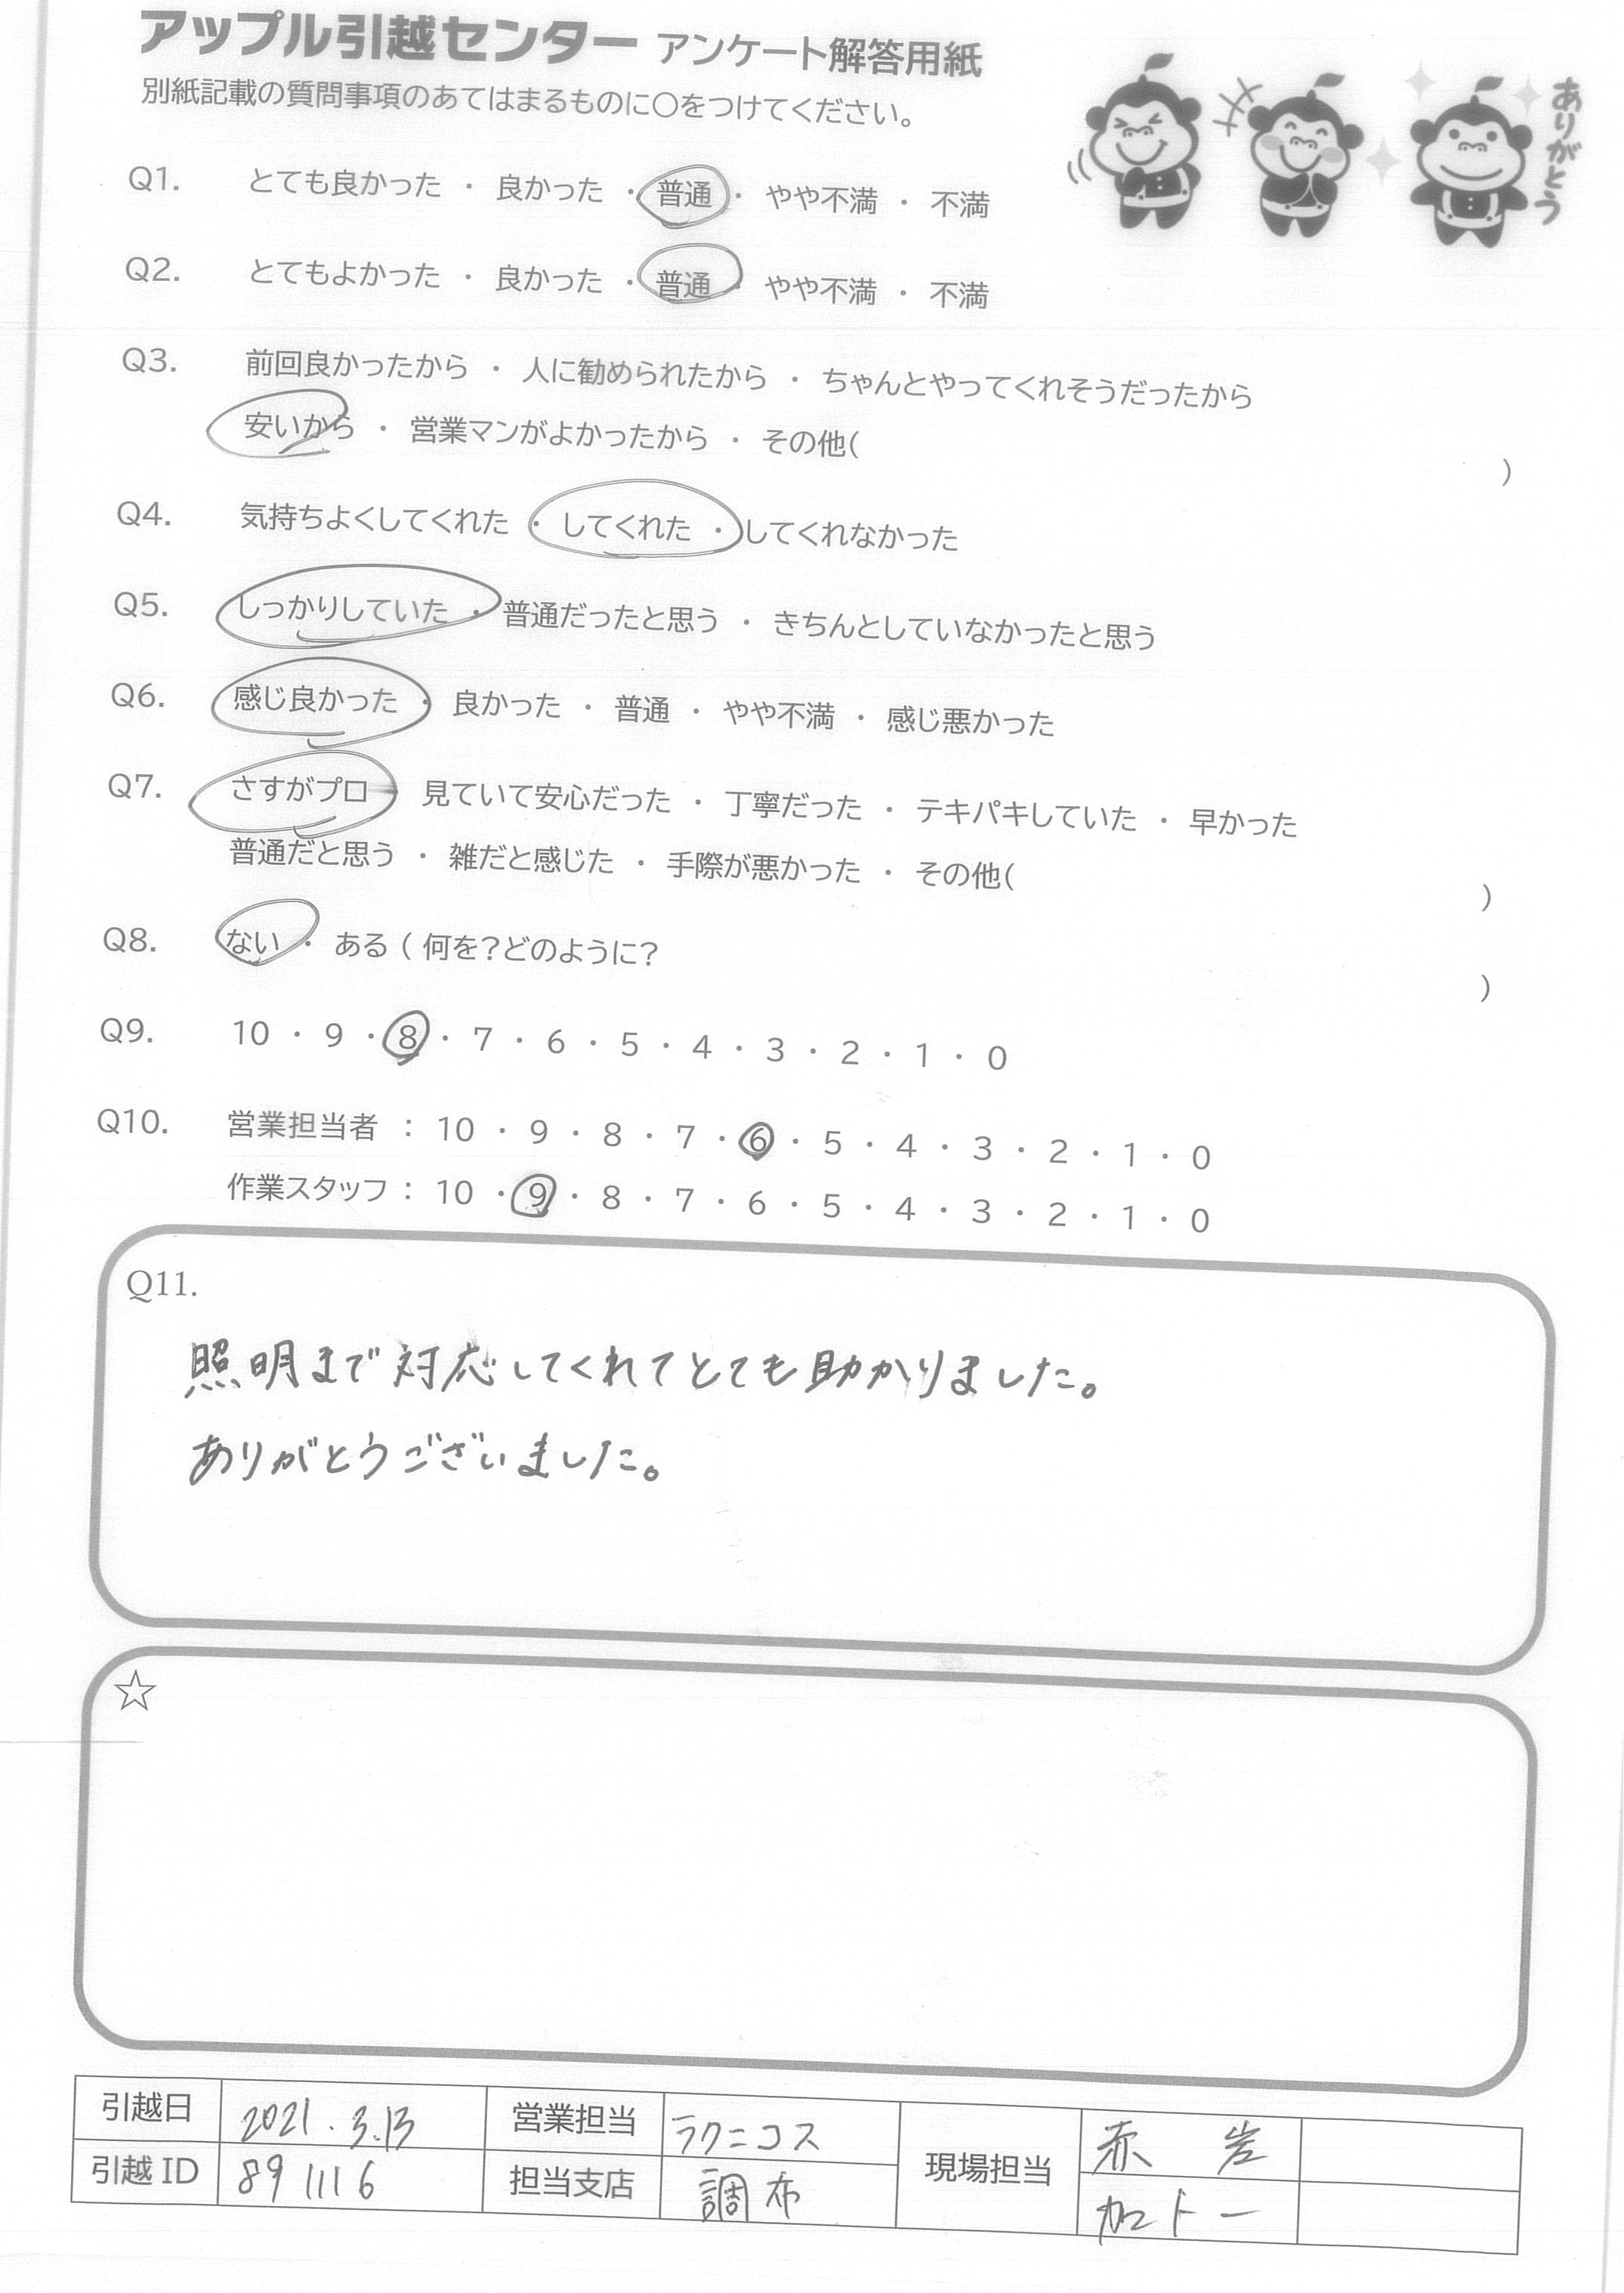 アップル引越センター アンケート解答用紙
別紙記載の質問事項のあてはまるものに〇をつけてください。
ありがとう
Q1. とても良かった ・ 良かった ・ 普通 ・ やや不満 ・ 不満
Q2. とてもよかった ・ 良かった ・ 普通 ・ やや不満 ・ 不満
Q3. 前回良かったから ・ 人に勧められたから ・ ちゃんとやってくれそうだったから
安いから ・ 営業マンがよかったから ・ その他( )
Q4. 気持ちよくしてくれた ・ してくれた ・ してくれなかった
Q5. しっかりしていた ・ 普通だったと思う ・ きちんとしていなかったと思う
Q6. 感じ良かった ・ 良かった ・ 普通 ・ やや不満 ・ 感じ悪かった
Q7. さすがプロ ・ 見ていて安心だった ・ 丁寧だった ・ テキパキしていた ・ 早かった
普通だと思う ・ 雑だと感じた ・ 手際が悪かった ・ その他( )
Q8. ない ・ ある ( 何を?どのように? )
Q9. 10 ・ 9 ・ 8 ・ 7 ・ 6 ・ 5 ・ 4 ・ 3 ・ 2 ・ 1 ・ 0
Q10. 営業担当者 : 10 ・ 9 ・ 8 ・ 7 ・ 6 ・ 5 ・ 4 ・ 3 ・ 2 ・ 1 ・ 0
作業スタッフ : 10 ・ 9 ・ 8 ・ 7 ・ 6 ・ 5 ・ 4 ・ 3 ・ 2 ・ 1 ・ 0
Q11.
照明まで対応してくれてとても助かりました。
ありがとうございました。
☆
引越日 2021.3.13 営業担当 ラクニコス 現場担当 赤岩
引越ID 891116 担当支店 調布 加トー